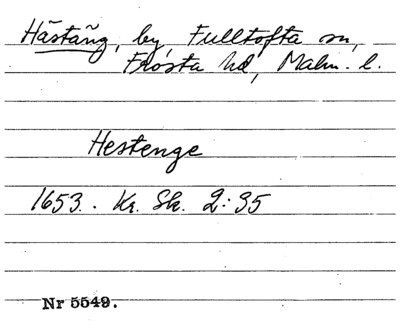 Hästäng, by Fulltofta sn,
Frosta hd, Malm. l.
Hestenge
1653. Kr. Sk. 2:35
Nr 5549.